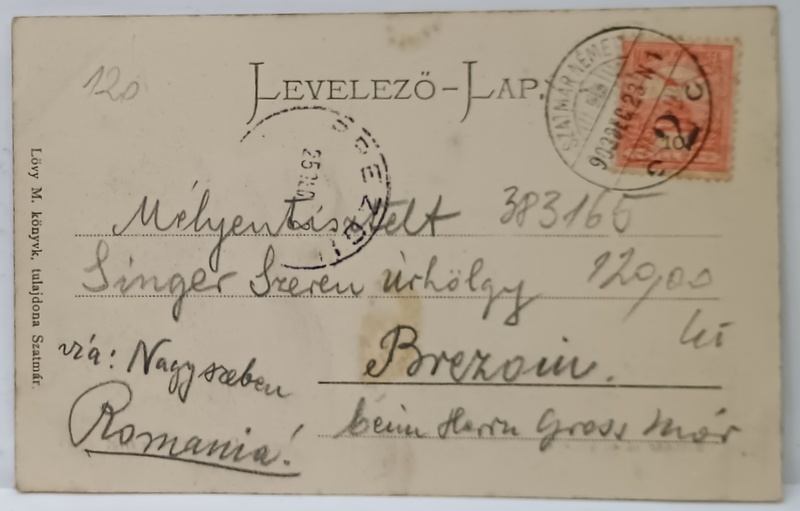 120
LEVELEZŐ-LAP.
SZATMÁR-NÉMETI
903 DEC 23 N 1
10
BREZOIU
25
Lövy M. könyvk. tulajdona Szatmár.
Mélyentisztelt 383165
Singer Szeren Úrhölgy 120,00
via: Nagyszeben
Brezoin.
Romania!
beim Herrn Gross Mór